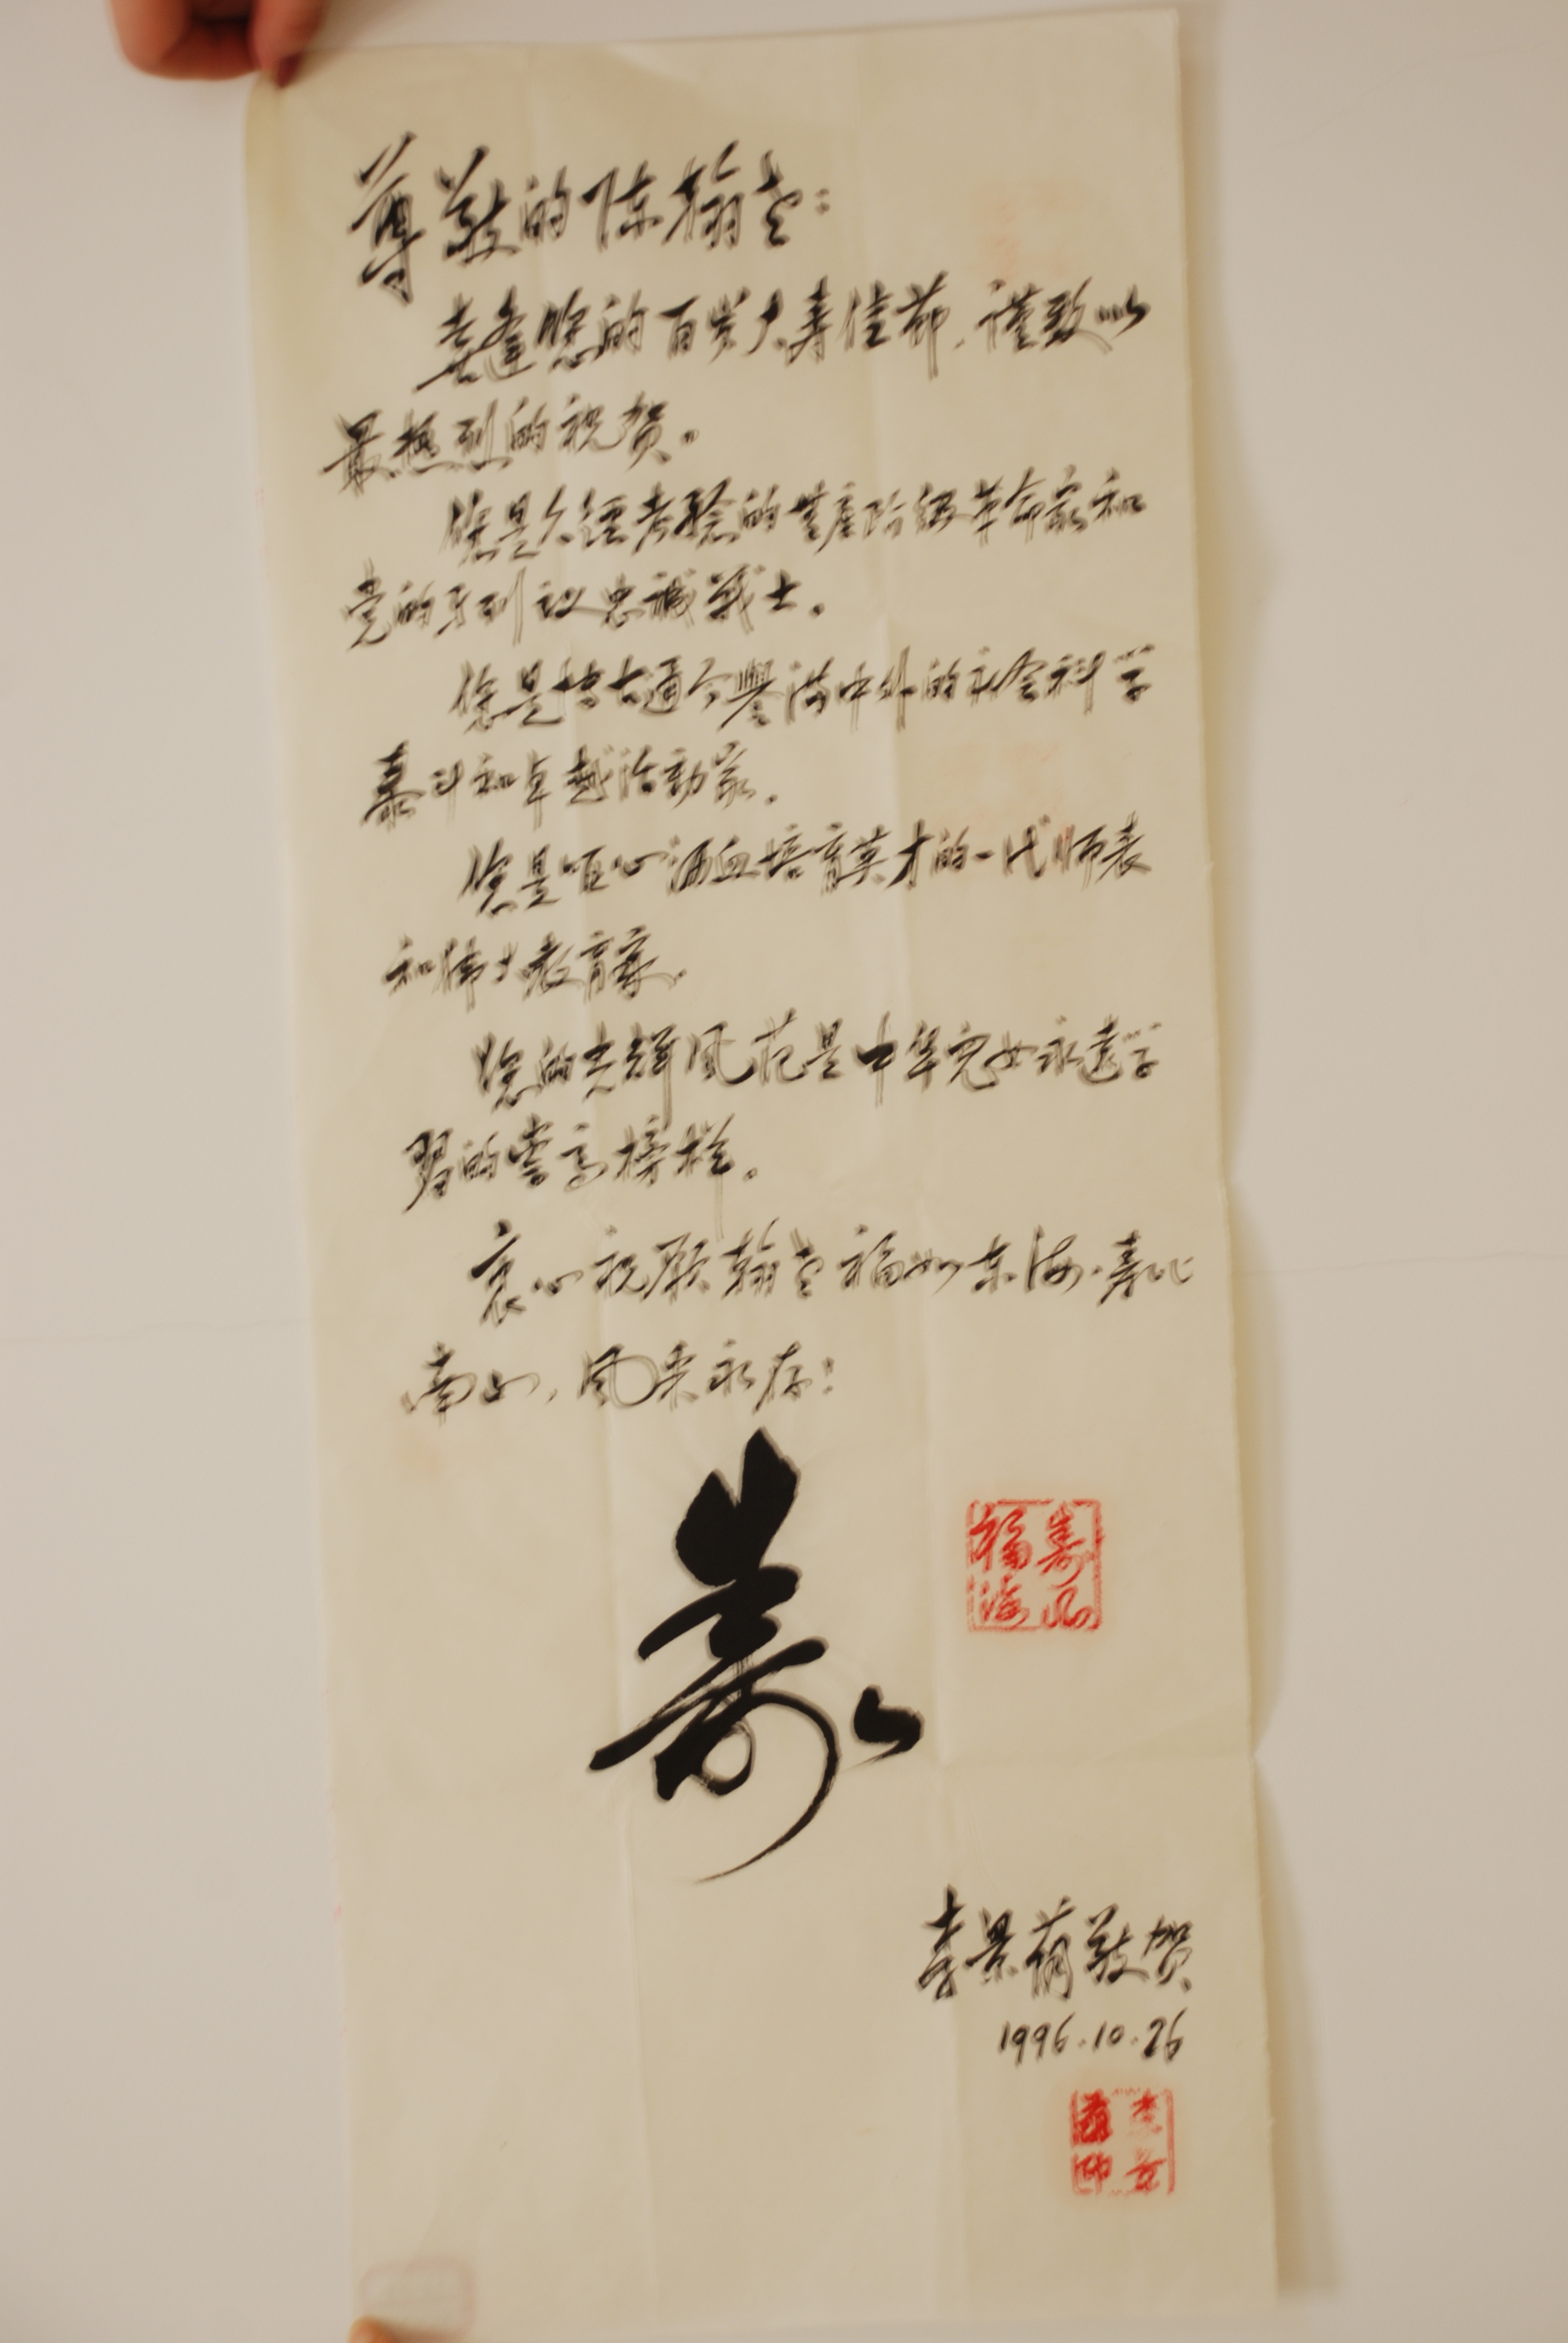 尊敬的陈翰老：
喜逢您的百岁大寿佳节，谨致以
最热烈的祝贺。
您是久经考验的无产阶级革命家和
党的马列主义忠诚战士。
您是博古通今誉满中外的社会科学
泰斗和卓越活动家。
您是呕心沥血培育英才的一代师表
和伟大教育家。
您的光辉风范是中华儿女永远学
习的崇高榜样。
衷心祝愿翰老福如东海，寿比
南山，风采永存！
寿
福寿
海山
李景 敬贺
1996.10.26